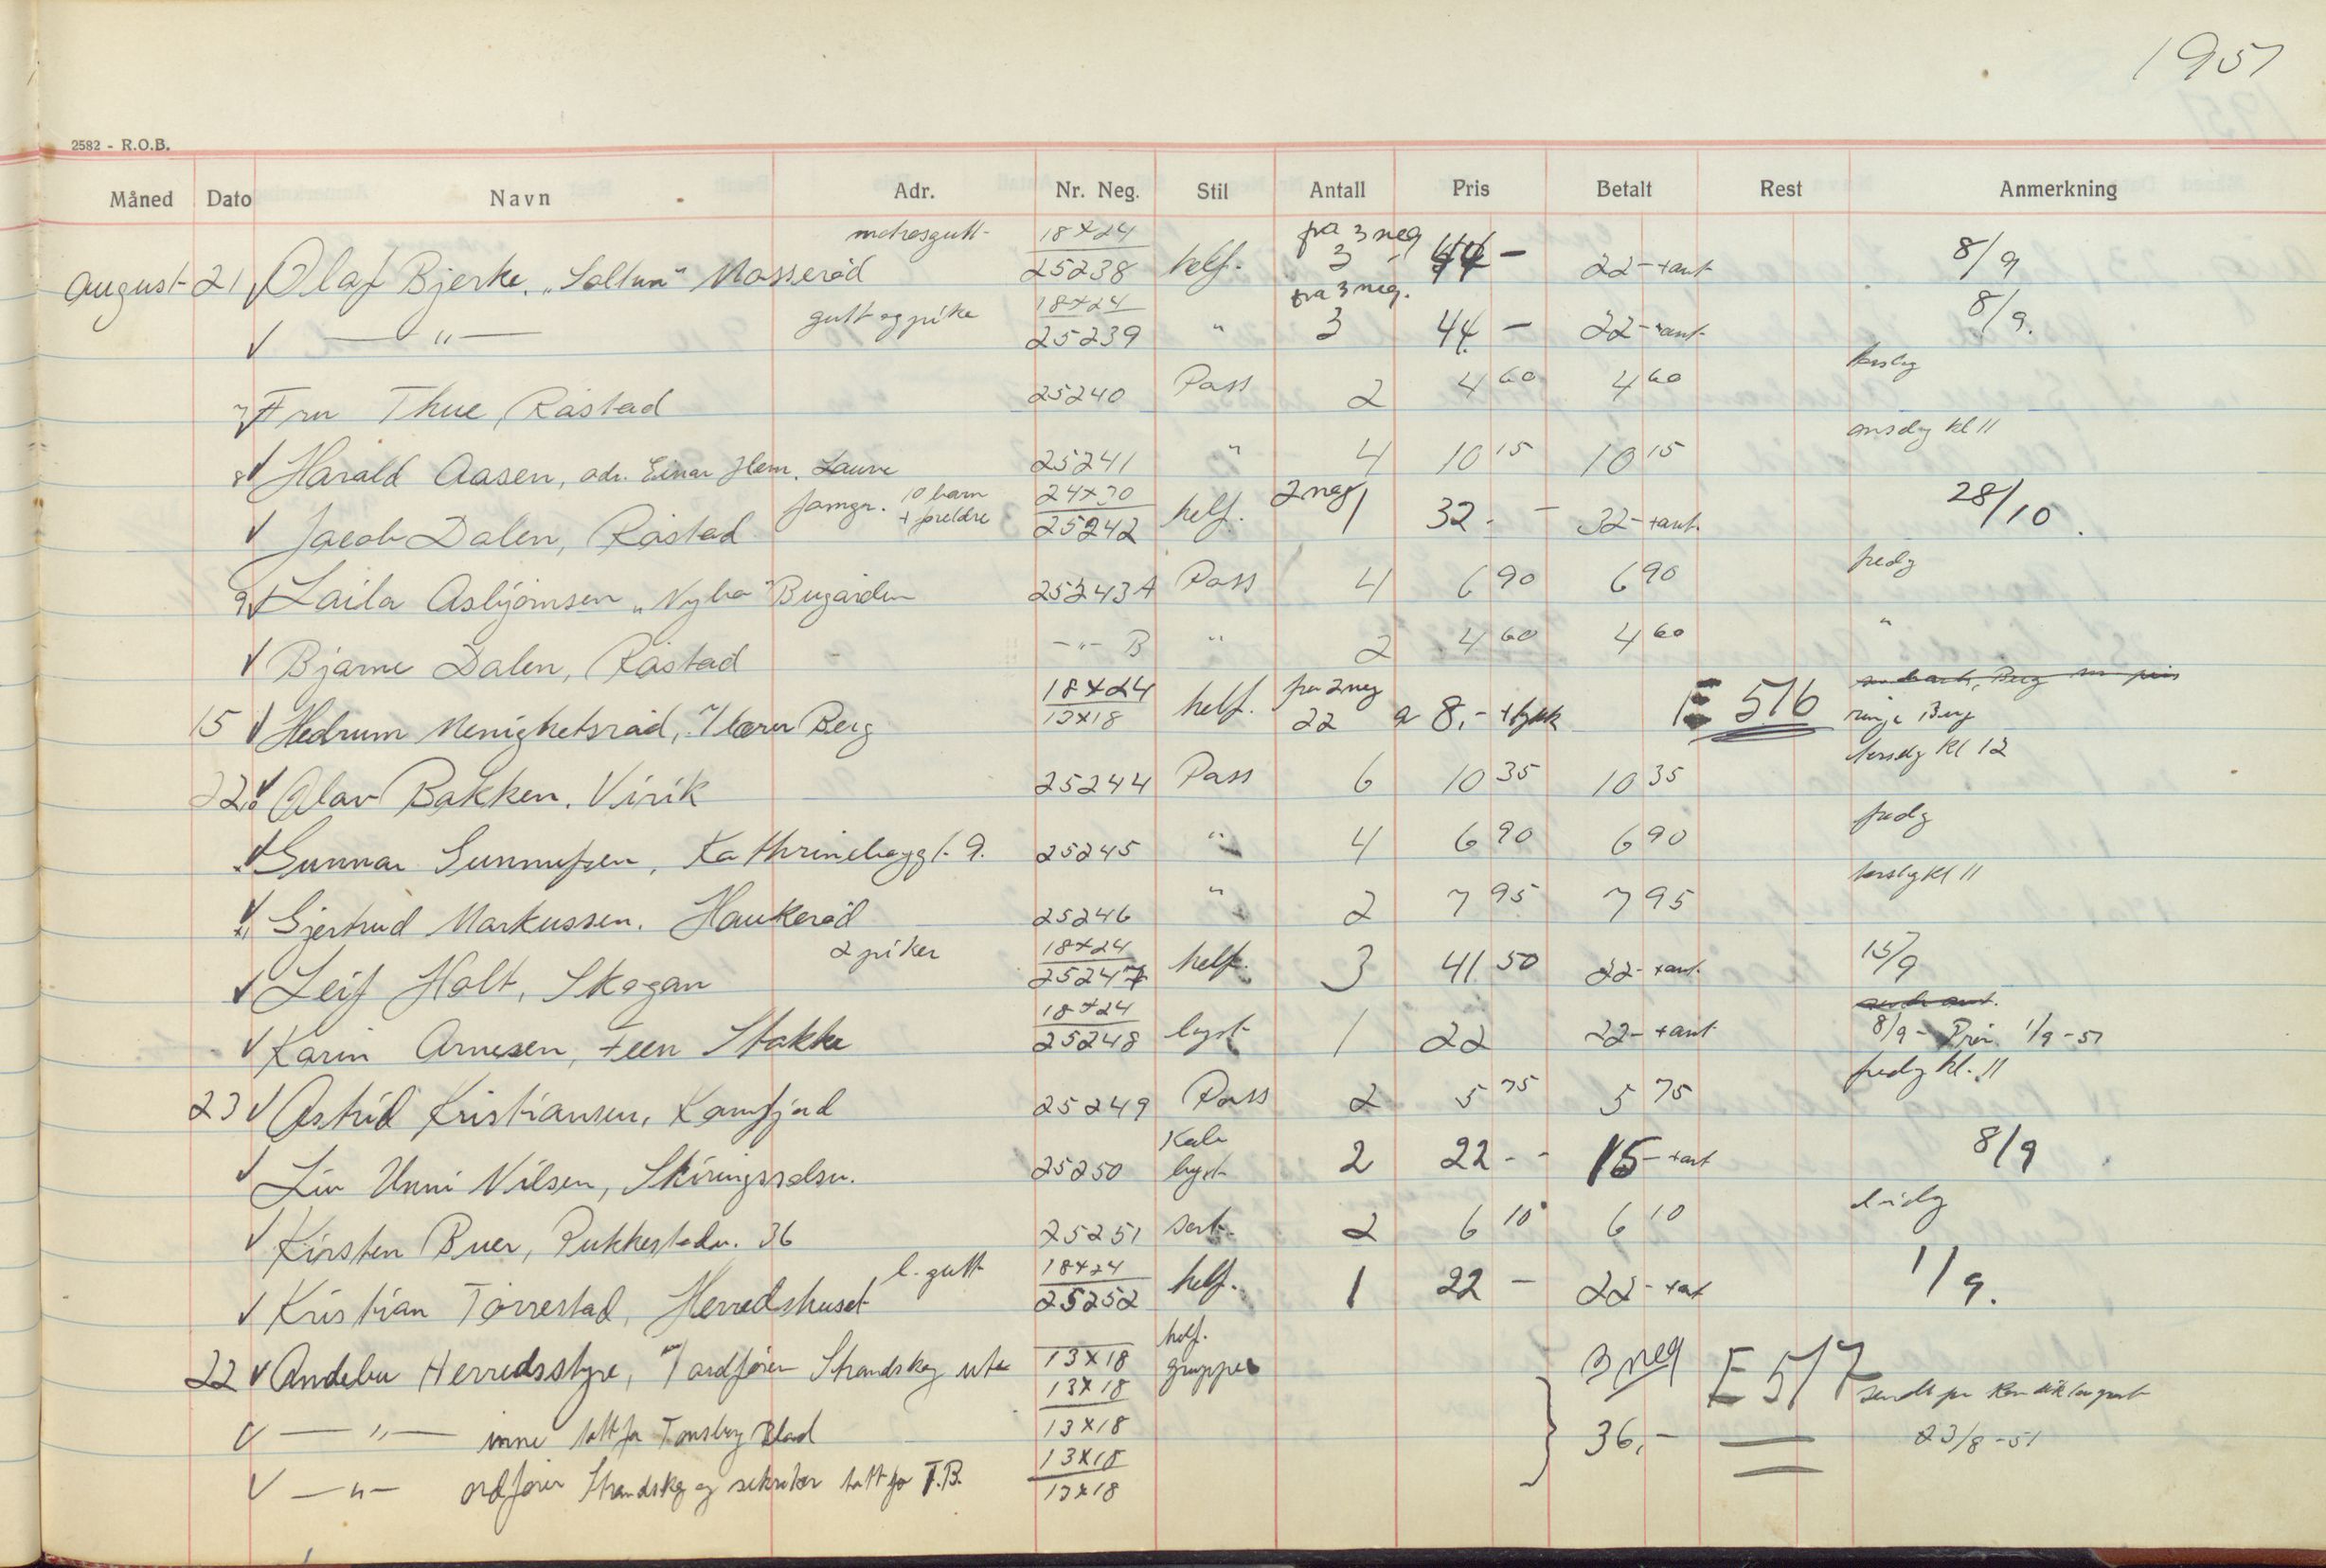 1951
2582 - R.O.B.
Måned Dato Navn Adr. Nr. Neg. Stil Antall Pris Betalt Rest Anmerkning
matrosgutt 18x24 fra 3 neg
August 21 Olaf Bjerke, "Soltun" Mosserød 25238 helf. 3 44 - 22 - + ant 8/9
gutt og pike 18x24 fra 3 neg.
— " — 25239 " 3 44 - 22 - + ant 8/9.
7 Fru Thue, Råstad 25240 Pass 2 4 60 4 60 torsdag
8 Harald Aasen, adr. Einar Hem, Lauve 25241 " 4 10 15 10 15 onsdag kl 11
famgr. 10 barn + foreldre 24x30 2 neg
Jacob Dalen, Råstad 25242 helf. 1 32. - 32 - + ant. 28/10.
9 Laila Asbjørnsen "Nybo" Bugården 25243 A Pass 4 6 90 6 90 fredag
Bjarne Dalen, Råstad — " — B " 2 4 60 4 60 "
18x24 fra 2 neg
15 Hedrum Menighetsråd, v/ lærer Berg 13x18 helf. 22 a 8,- + frakt E 516 ringe Berg
22 Olav Bakken, Virik 25244 Pass 6 10 35 10 35 torsdag kl 12
Gunnar Gunnufsen, Kathrineborggt. 9. 25245 " 4 6 90 6 90 fredag
Gjertrud Markussen. Haukerød 25246 " 2 7 95 7 95 torsdag kl 11
2 piker 18x24
Leif Holt, Skogan 25247 helf. 3 41 50 22 - + ant. 15/9
18x24
Karin Arnesen, Feen Stokke 25248 bryst 1 22 22 - + ant 8/9 - Prøv. 1/9 - 51
23 Astrid Kristiansen, Kamfjord 25249 Pass 2 5 75 5 75 fredag kl. 11
Kab
Liv Unni Nilsen, Skiringssalsv. 25250 bryst 2 22 - - 15 - + ant 8/9
Kirsten Buer, Pukkestadv. 36 25251 sort 2 6 10 6 10 lørdag
l. gutt 18x24
Kristian Tørrestad, Herredshuset 25252 helf. 1 22 - 22 - + ant 1/9.
helf.
22 Andebu Herredsstyre, v/ ordfører Strandskog ute 13x18 grupper 3 neg E 517
13x18
— " — inne tatt for Tønsberg Blad 13x18 36,- 23/8 - 51
13x18
— " — ordfører Strandskog og sekretær tatt for T.B. 13x18